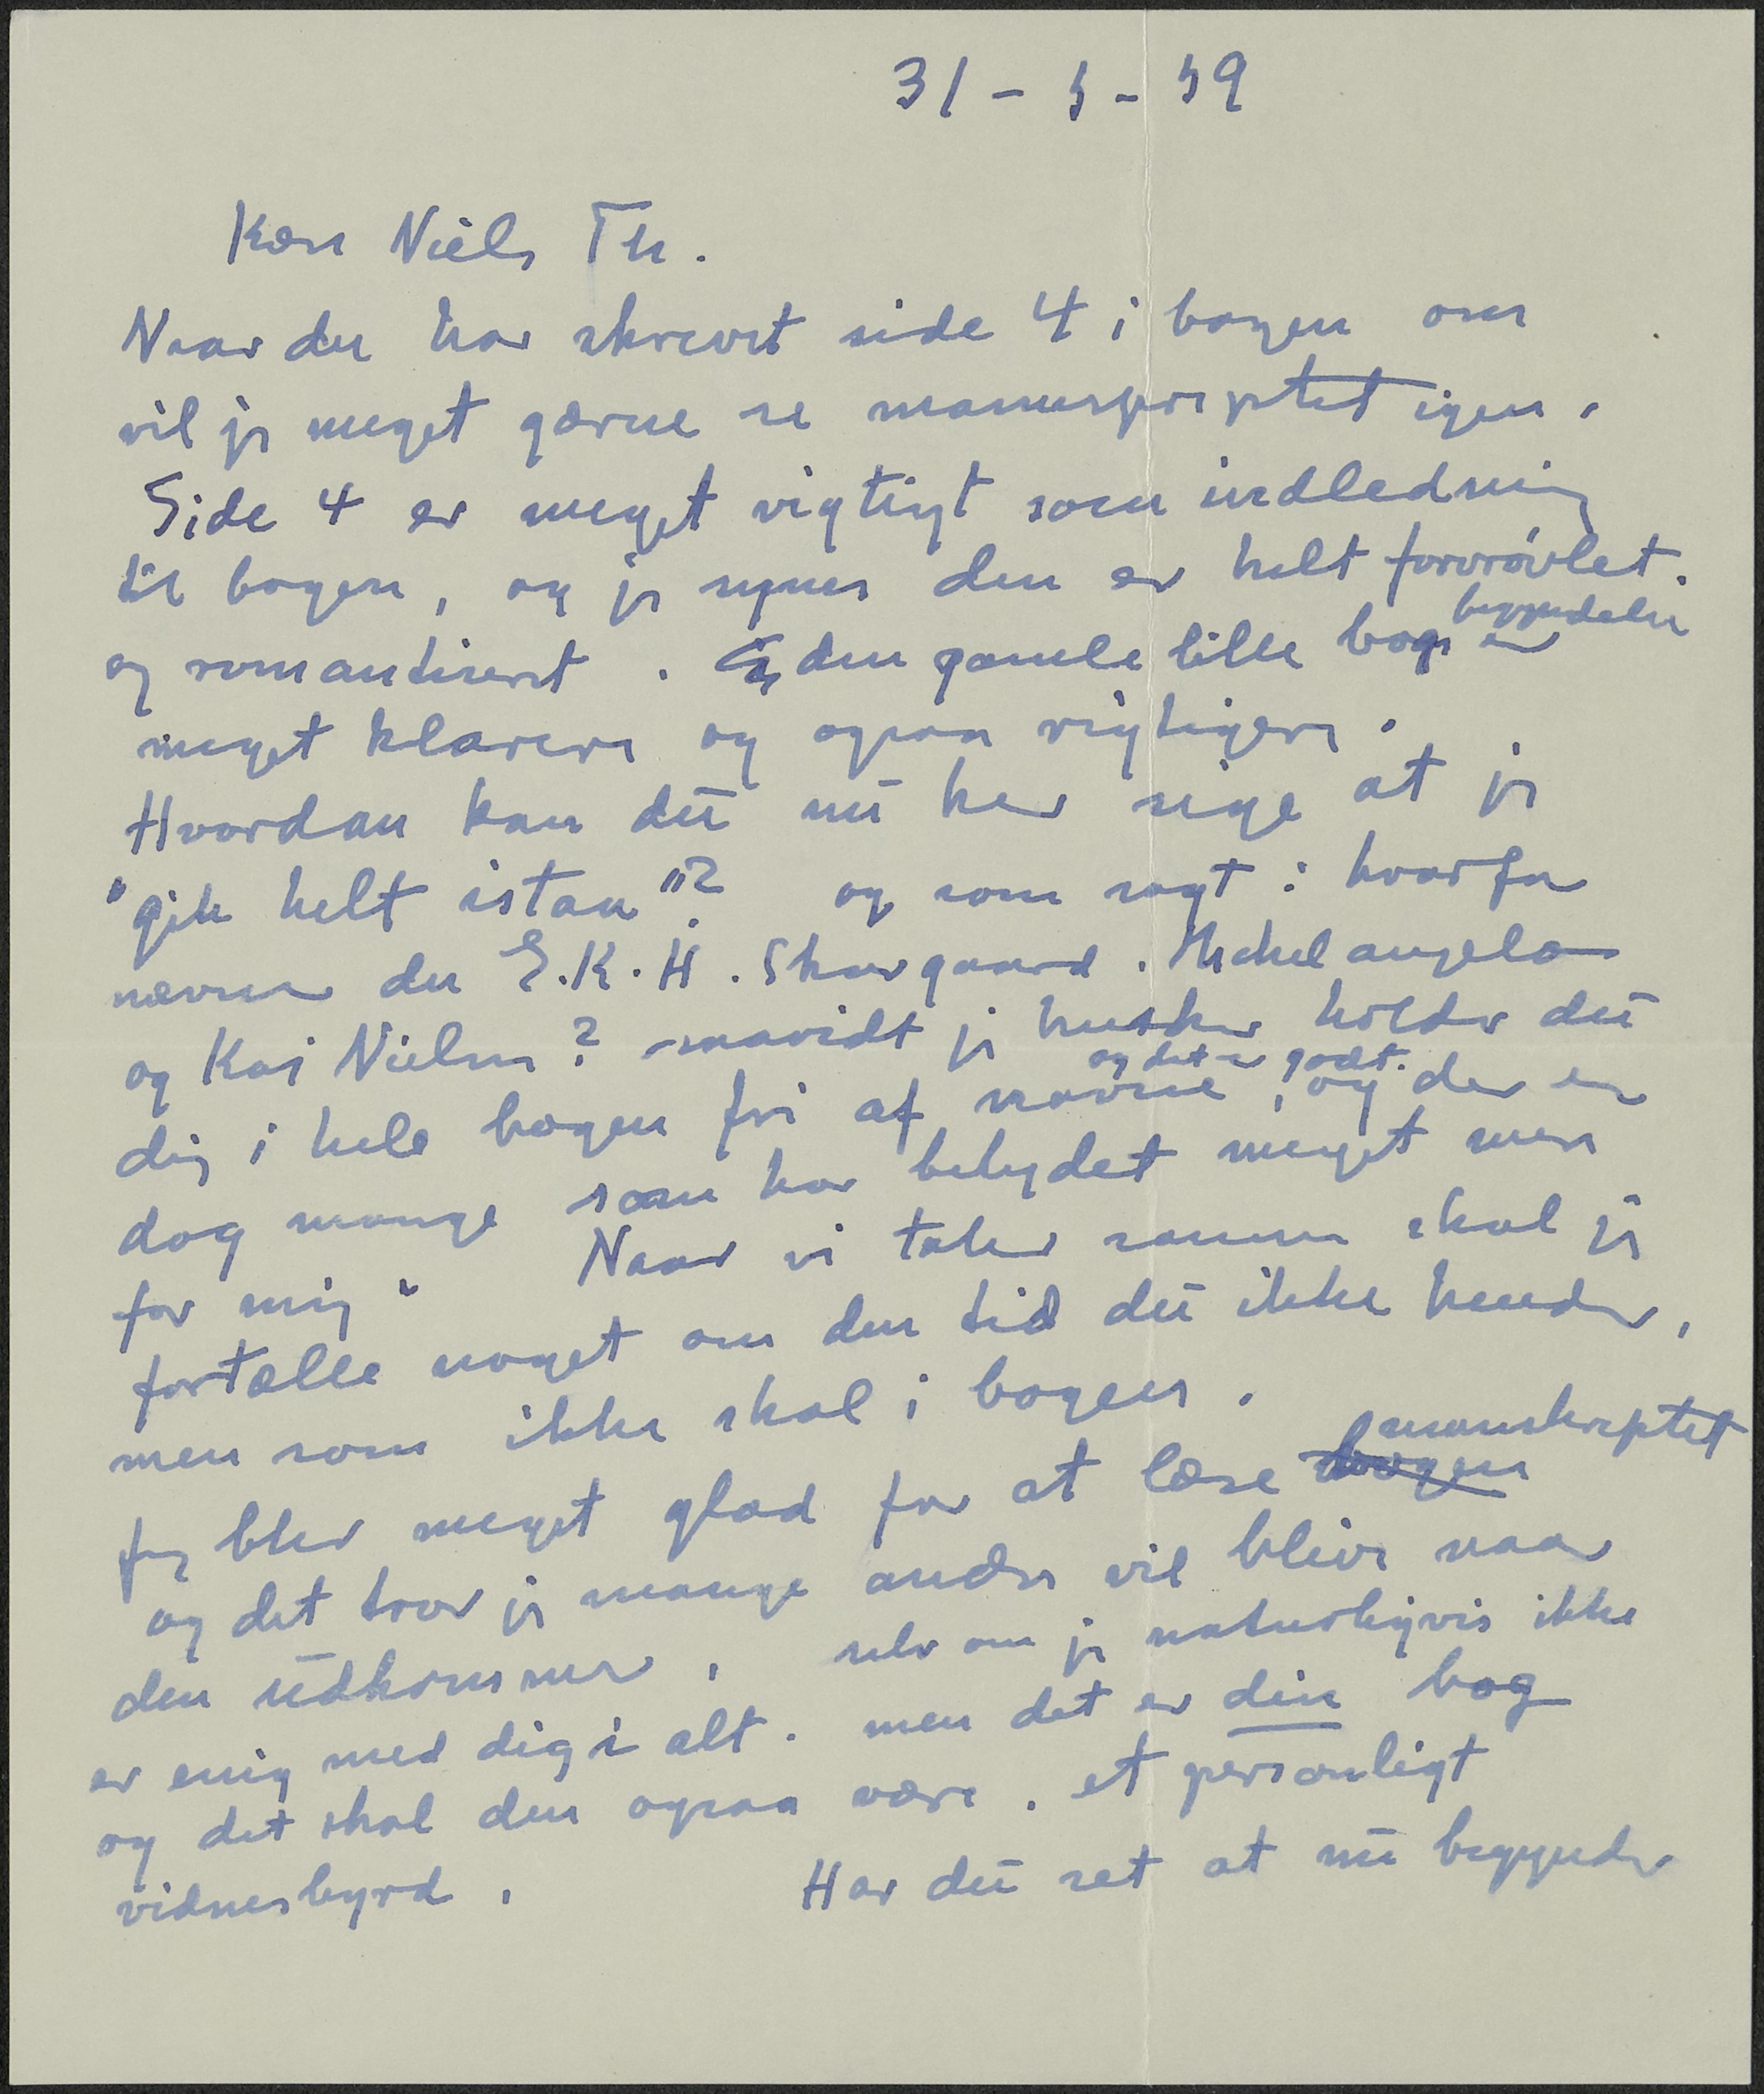 31 - 5 - 59
Kære Niels Th.
Naar du har skrevet side 4 i bogen om
vil jeg meget gærne se manuskriptet igen.
Side 4 er meget vigtigt som indledning
til bogen, og jeg synes den er helt forvrøvlet.
og romantiseret. I den gamle lille bogs begyndelse er
meget klarere og ogsaa rigtigere.
Hvordan kan du nu her sige at jeg
"gik helt istaa"? og som sagt: hvorfor
nævner du E.K.H. Skovgaard. Michelangelo
og Kai Nielsen? – saavidt jeg husker holder du
dig i hele bogen fri af navne, og det er godt. og der er
dog mange som har betydet meget mere
for mig. Naar vi taler sammen skal jeg
fortælle noget om den tid du ikke kender,
men som ikke skal i bogen.
Jeg blev meget glad for at læse bogen manuskriptet
og det tror jeg mange andre vil blive naar
den udkommer, selv om jeg naturligvis ikke
er enig med dig i alt. men det er din bog
og det skal den ogsaa være. et personligt
vidnesbyrd. Har du set at nu begynder